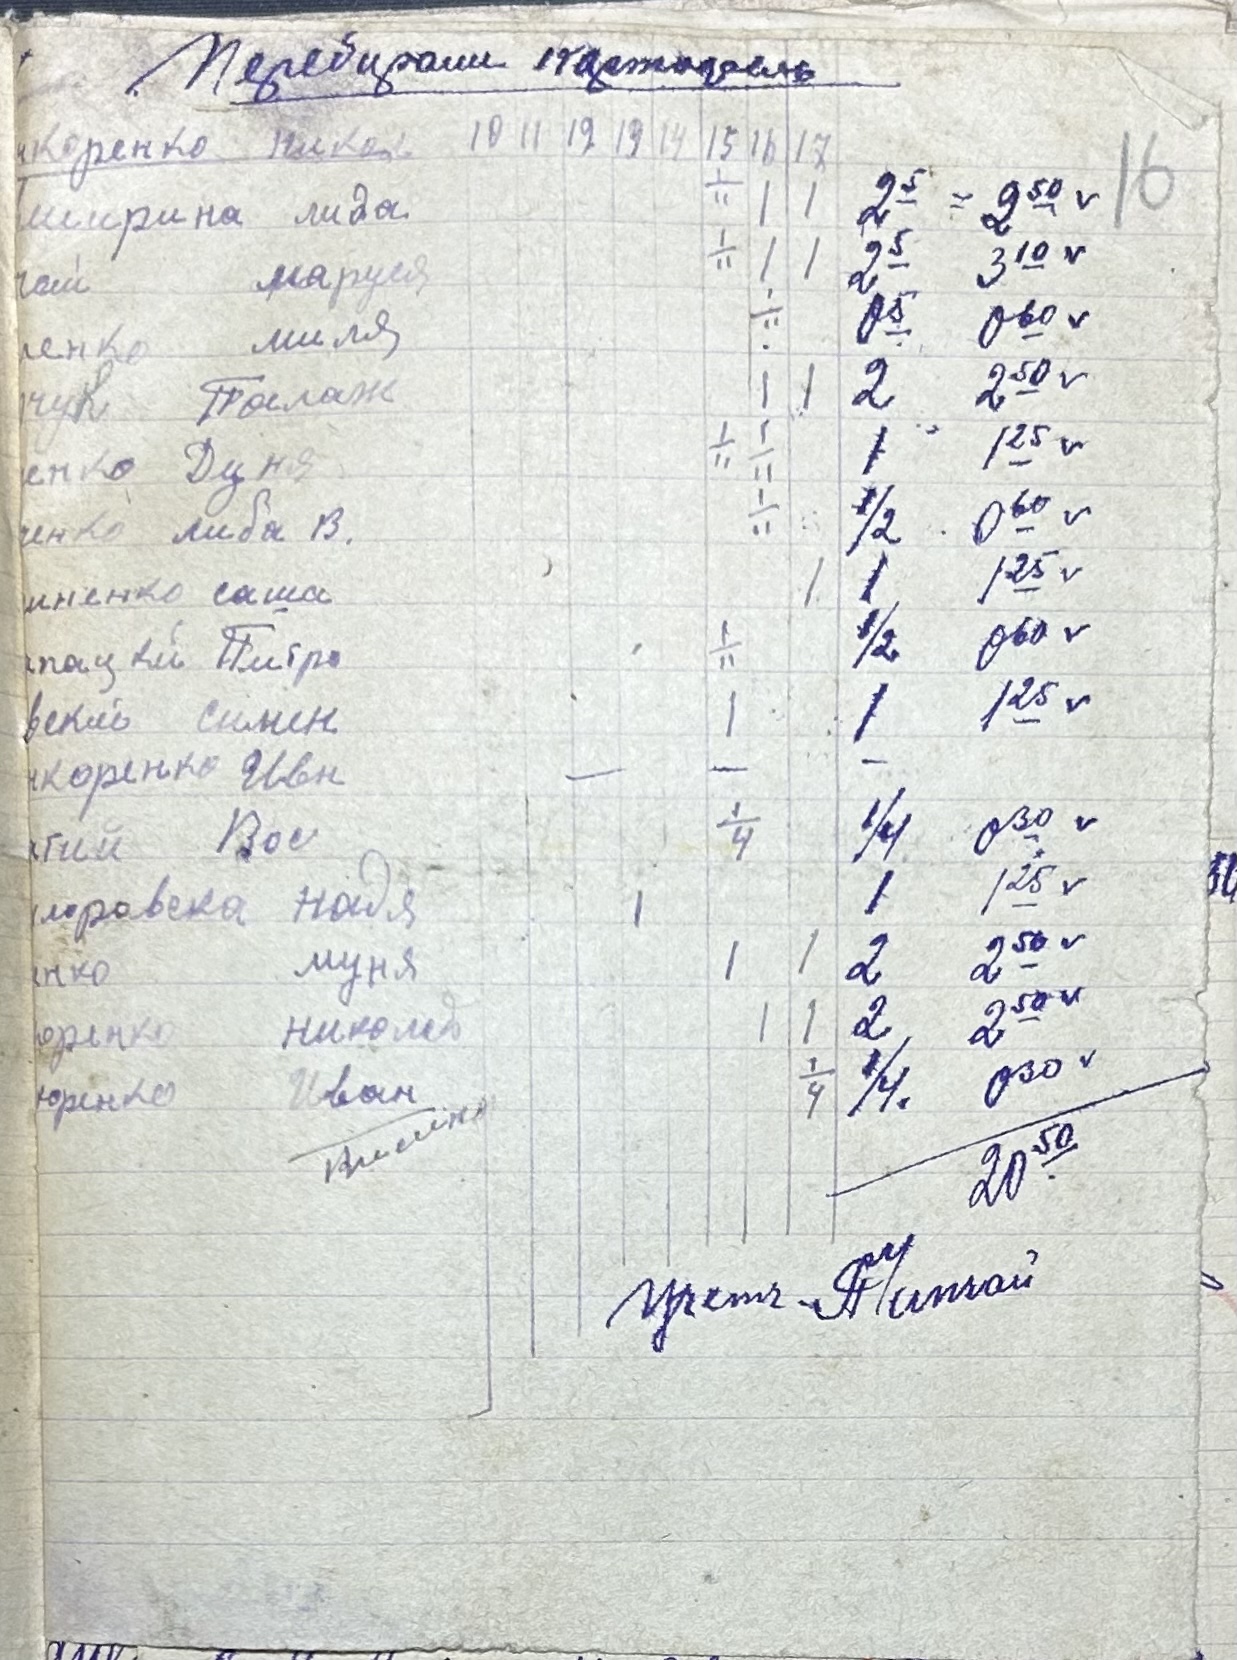 Перебирали картофель
16
коренко Никол 10 11 12 13 14 15 16 17
мирина лида 1/11 1 1 2 5 = 2 50 v
чай маруся 1/11 1 1 2 5 3 10 v
ренко миля 1/11 0 5 0 60 v
чук Палаж 1 1 2 2 50 v
енко Дуня 1/11 1/11 1 1 25 v
ченко люба В. 1/11 1/2 0 60 v
иненко саша 1 1 1 25 v
пацкий Питро 1/11 1/2 0 60 v
вский симен 1 1 1 25 v
коренко Ивн — — —
атий Вос 1/4 1/4 0 30 v
моровска надя 1 1 1 25 v
нко муня 1 1 2 2 50 v
оренко николай 1 1 2 2 50 v
юренко Иван 1/4 1/4. 0 30 v
20 50